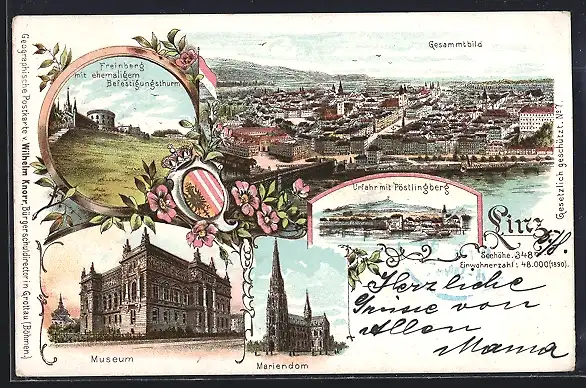 Gesammtbild
Freinberg
mit ehemaligem
Befestigungsthurm
Urfahr mit Pöstlingberg
Linz
Seehöhe:
Einwohnerzahl: 48.000 (1890).
Museum
Mariendom
Herzliche
Grüsse von
Allen
Mama
Geographische Postkarte v. Wilhelm Knorr, Bürgerschuldirector in Grottau (Böhmen.)
Gesetzlich geschützt. № 7.